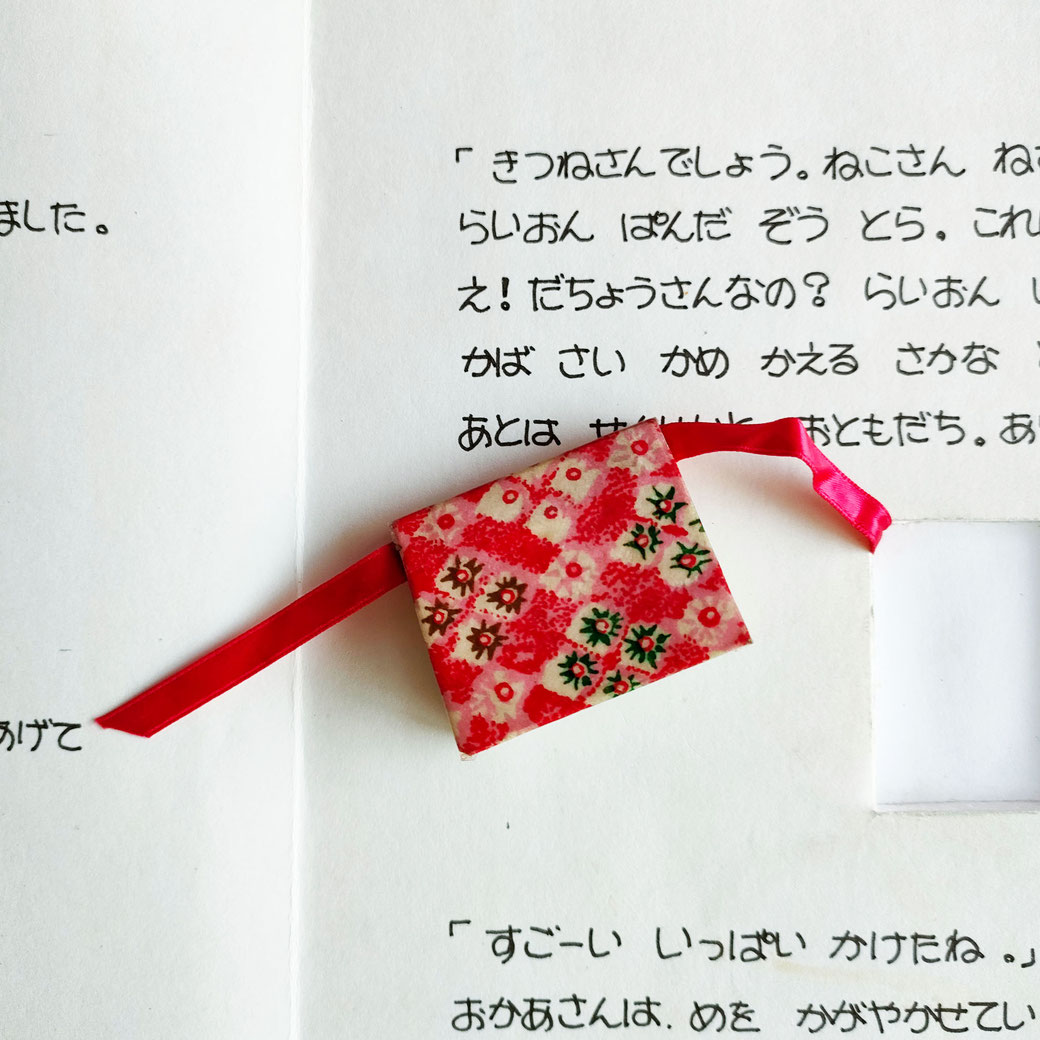 ました。
あげて
「きつねさんでしょう。ねこさん
らいおん ぱんだ ぞう とら。
え！だちょうさんなの？ らいおん
かば さい かめ かえる さかな
あとは おともだち。
「すごーい いっぱい かけたね。」
おかあさんは、めを かがやかせてい